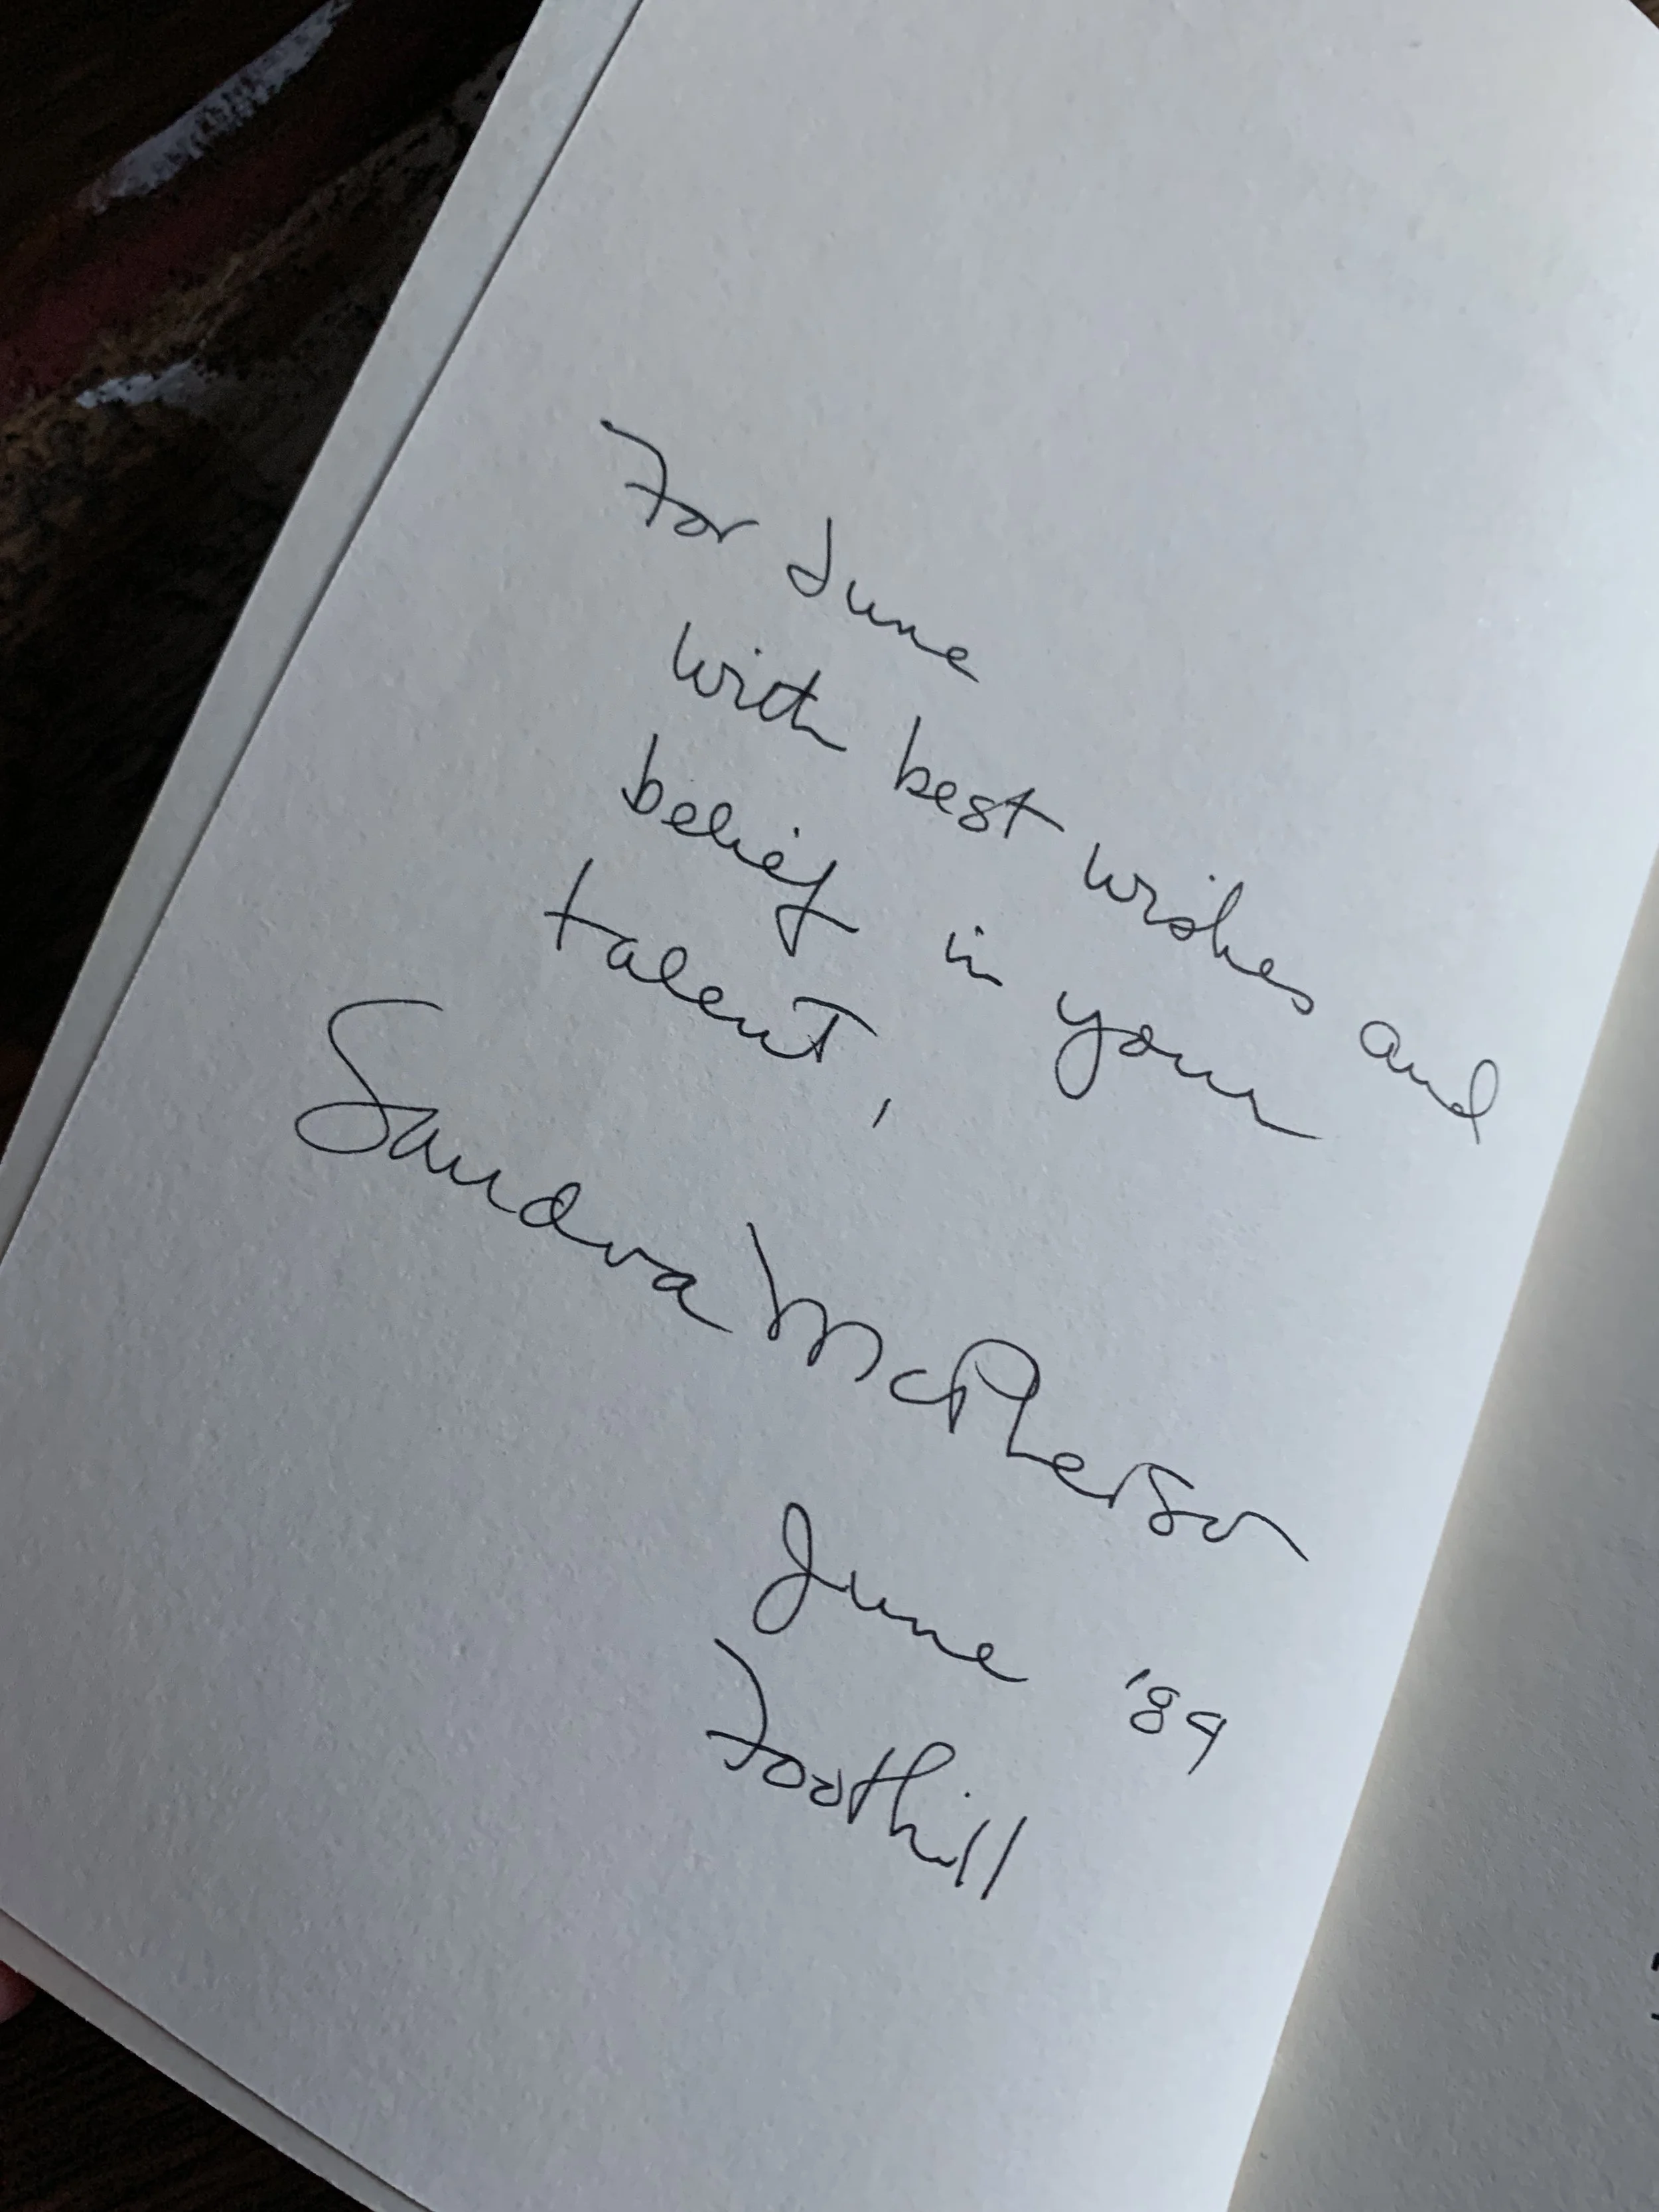 For June
with best wishes and
belief in your
talent,
Sandra McPherson
June '89
Foothill